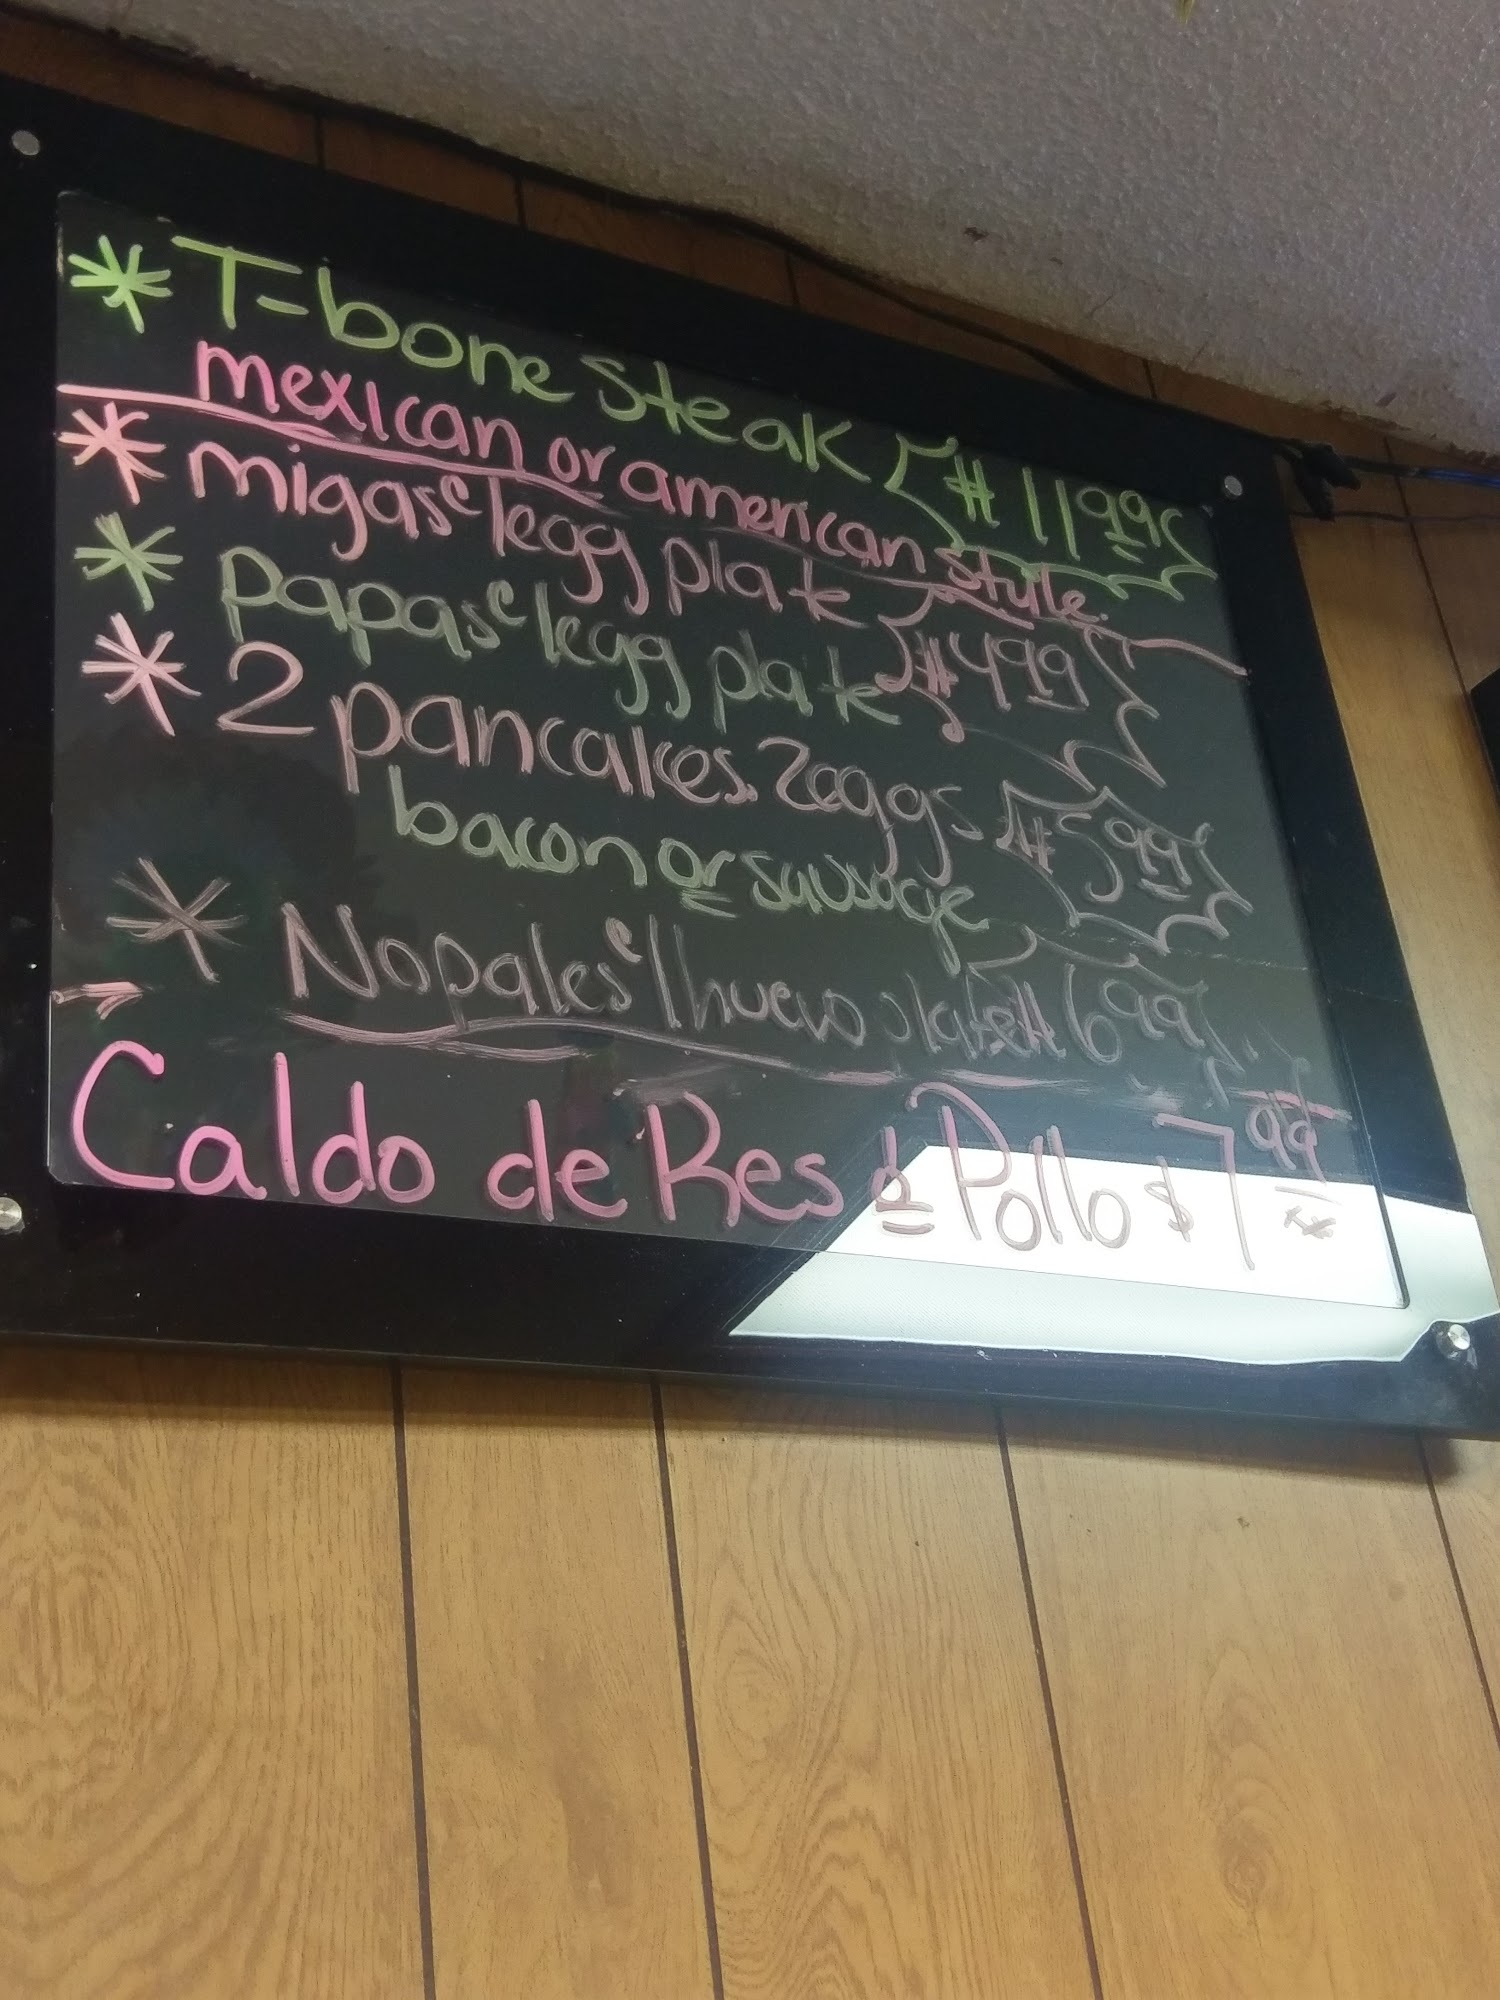 * T-bone Steak $11.99
mexican or american style.
* migas c/egg plate
* papas c/egg plate $4.99
* 2 pancakes. 2 eggs $5.99
bacon or sausage
* Nopales c/huevo plate $6.99
Caldo de Res ó Pollo $7.99